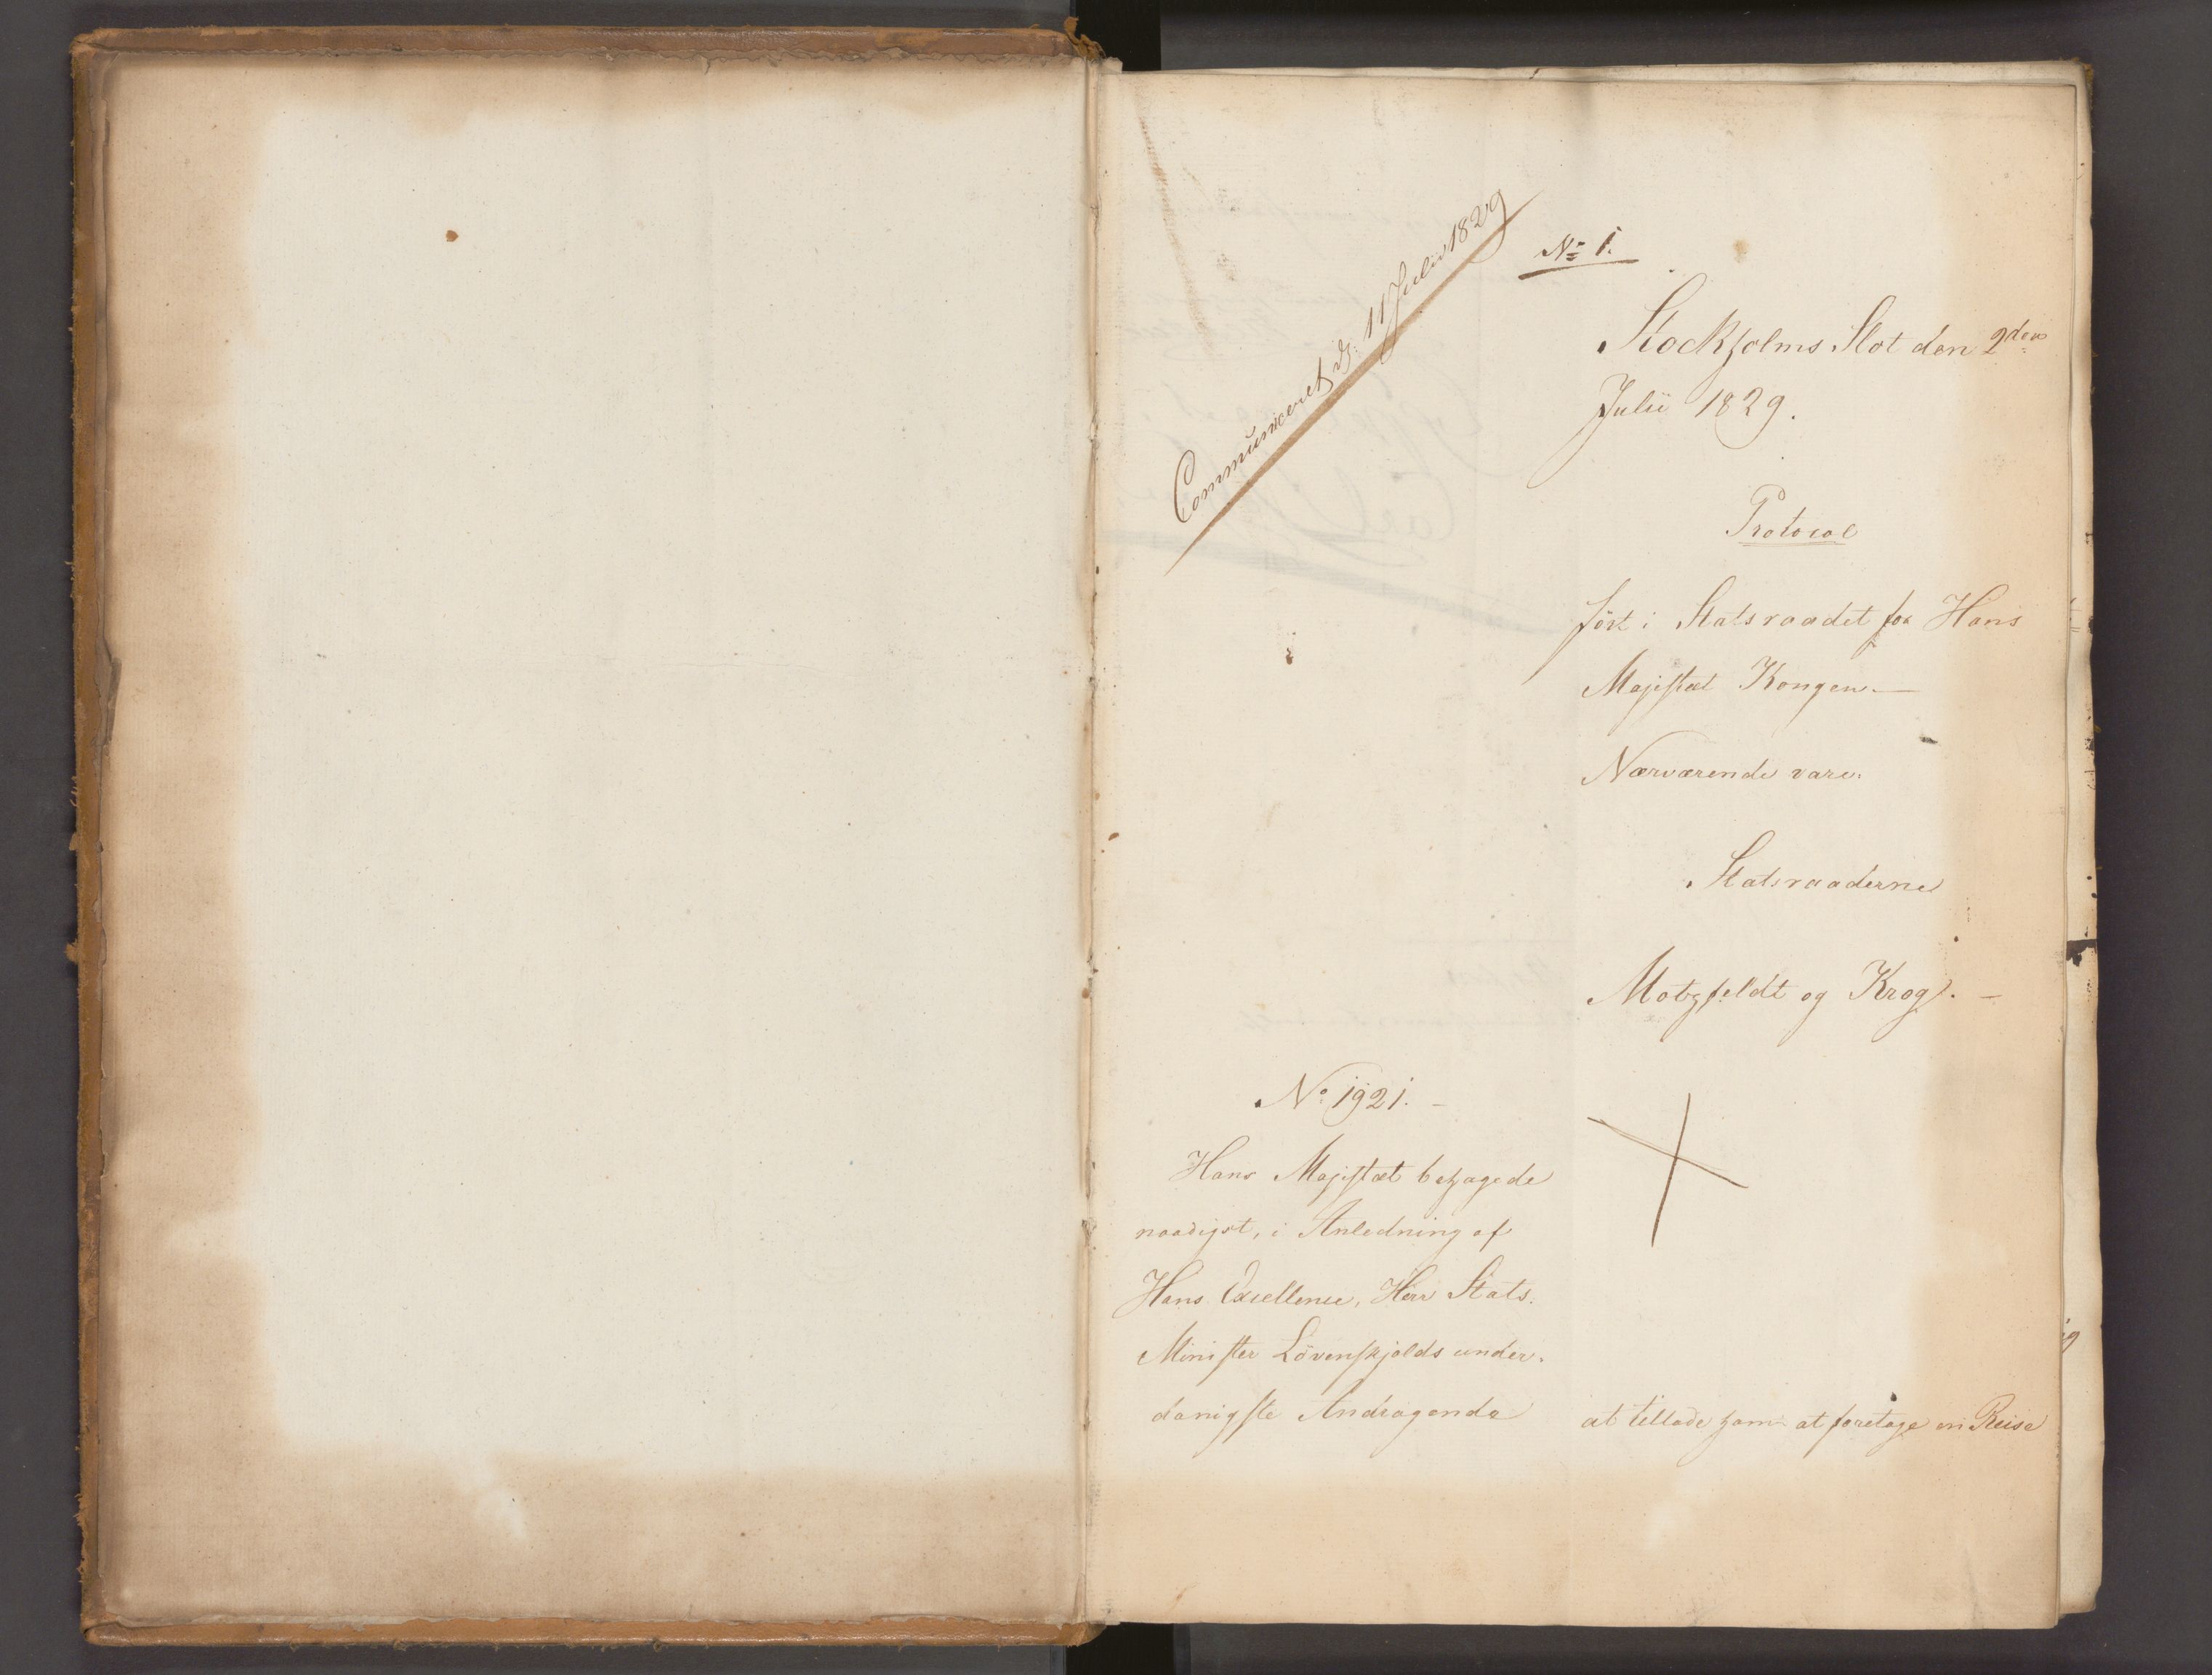 Communiceret d: 11 Julii 1829
No 1.
Stockholms Slot den 2den
Julii 1829.
Protocol
ført i Statsraadet for Hans
Majestæt Kongen. —
Nærværende vare:
Statsraaderne
Motzfeldt og Krogh. —
No 1921. —
Hans Majestæt behagede
naadigst, i Anledning af
Hans Excellence, Herr Stats-
Minister Løvenskjolds under-
danigste Andragende
at tillade ham at foretage en Reise